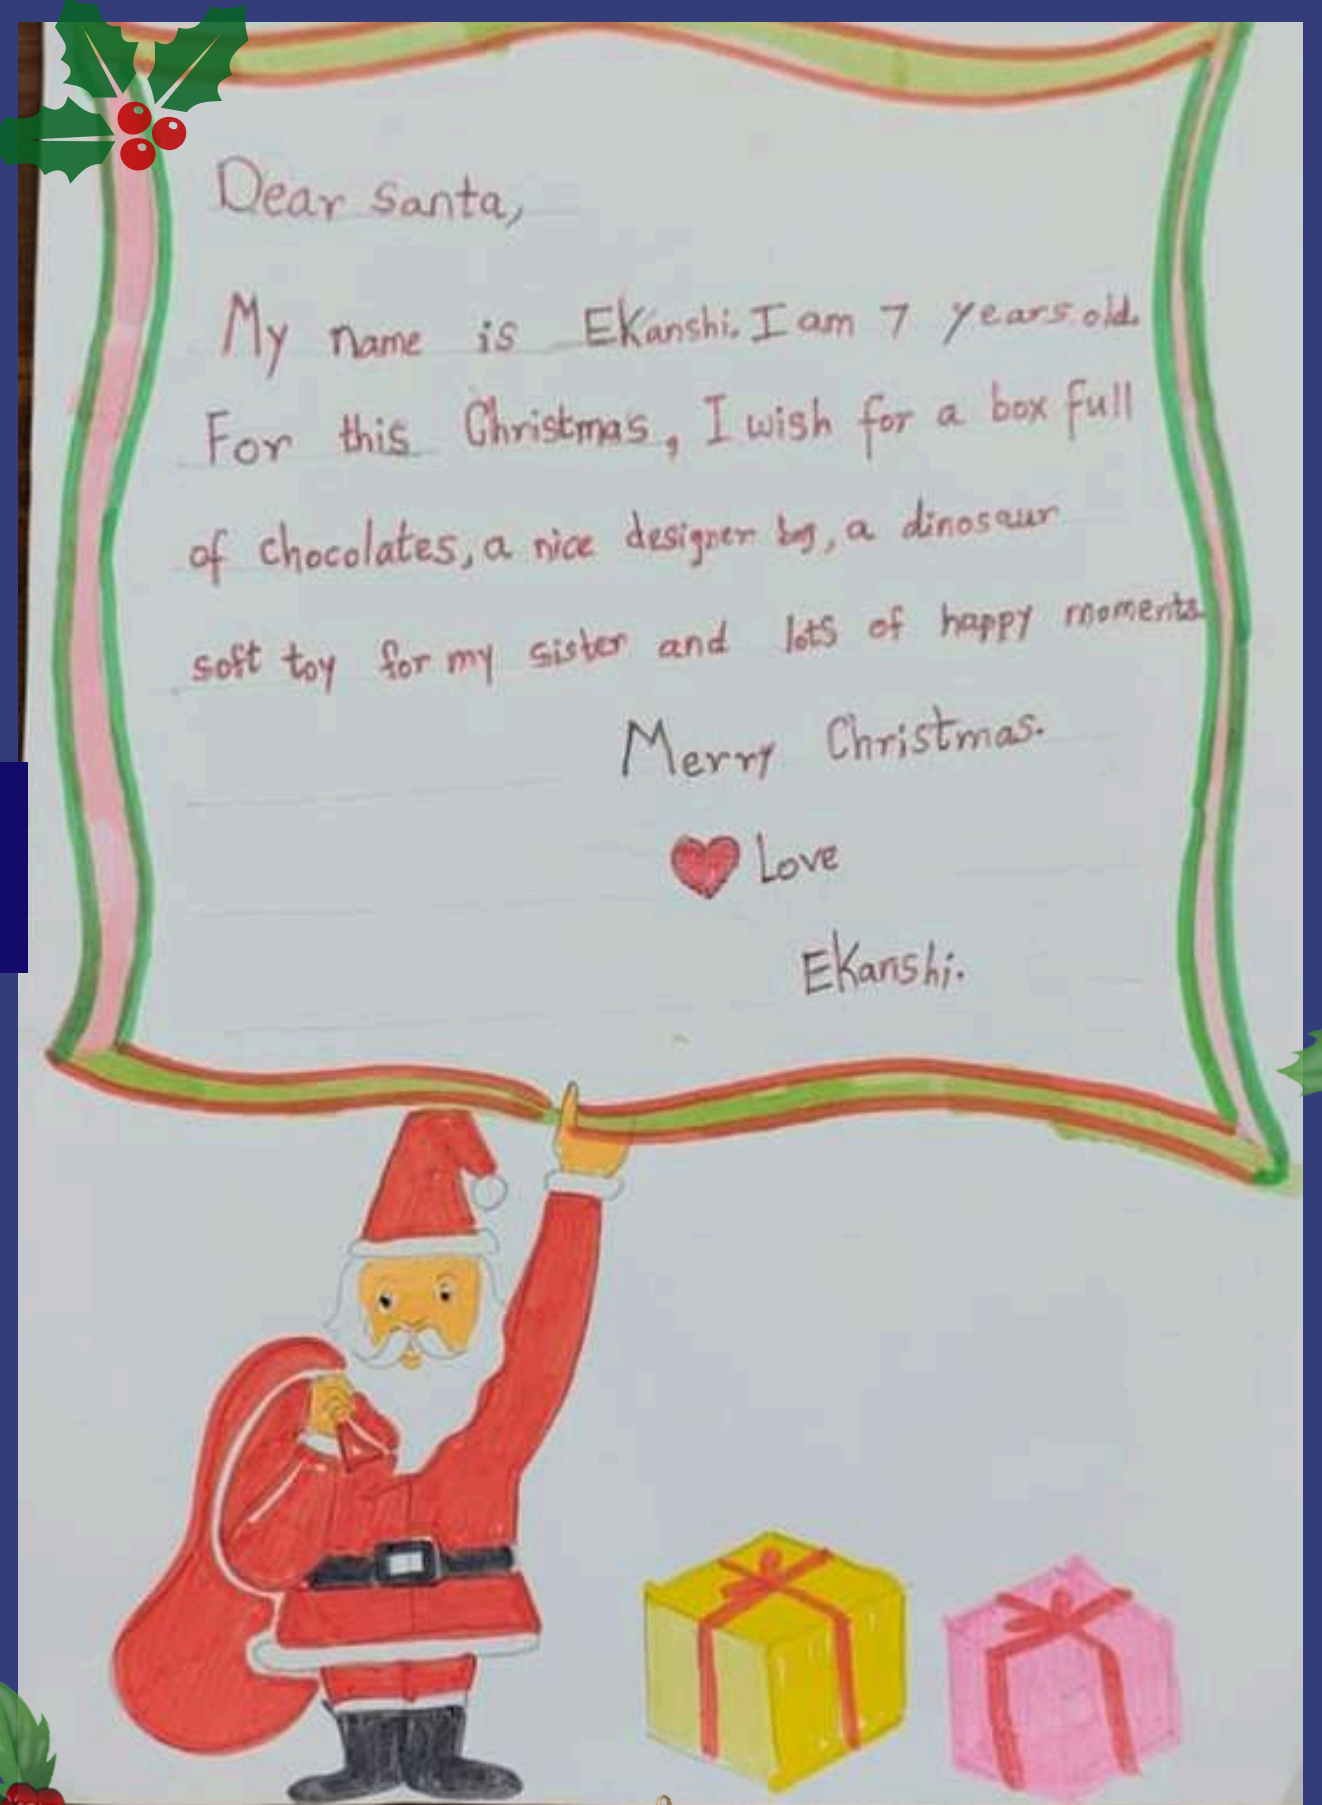 Dear Santa,
My name is Ekanshi. I am 7 years old.
For this Christmas, I wish for a box full
of chocolates, a nice designer bag, a dinosaur
soft toy for my sister and lots of happy moments.
Merry Christmas.
Love
Ekanshi.